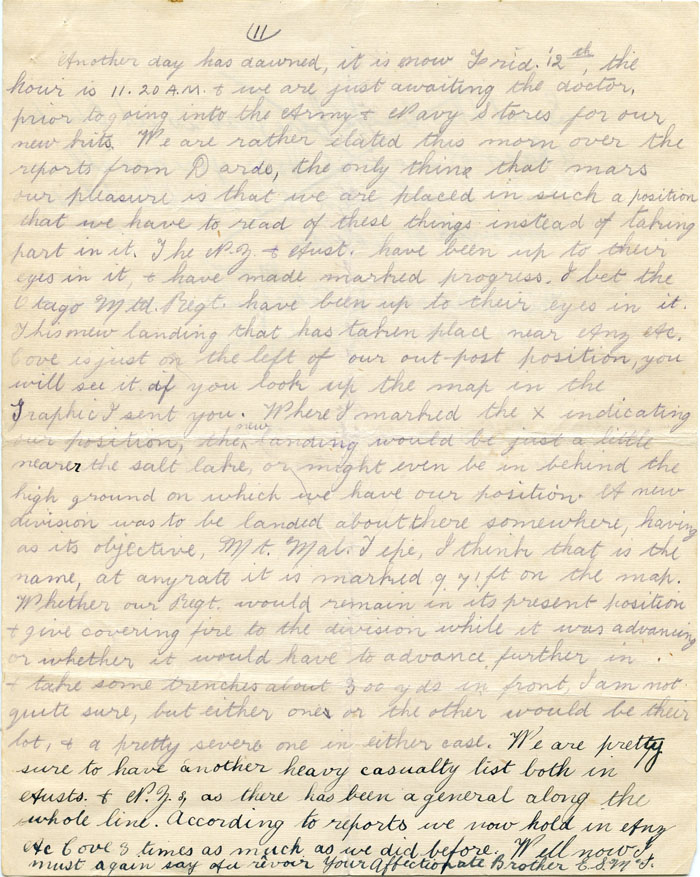 11
Another day has dawned, it is now Frid. 12th, the
hour is 11.20 A.M. & we are just awaiting the doctor,
prior to going into the Army & Navy Stores for our
new kits. We are rather elated this morn over the
reports from Dards, the only thing that mars
our pleasure is that we are placed in such a position
that we have to read of these things instead of taking
part in it. The N.Z & Aust. have been up to their
eyes in it, & have made marked progress. I bet the
Otago Mtd. Regt. have been up to their eyes in it.
This new landing that has taken place near Anz Ac.
Cove is just on the left of our out-post position, you
will see it if you look up the map in the
Graphic I sent you. Where I marked the X indicating
our position, the new landing would be just a little
nearer the salt lake, or might even be in behind the
high ground on which we have our position. A new
division was to be landed about there somewhere, having
as its objective, Mt. Mal. Tepe, I think that is the
name, at anyrate it is marked 971 ft on the map.
Whether our Regt. would remain in its present position
& give covering fire to the division while it was advancing
or whether it would have to advance further in
& take some trenches about 300 yds in front, I am not
quite sure, but either ones or the other would be their
lot, & a pretty severe one in either case. We are pretty
sure to have another heavy casualty list both in
Austs. & N.Z, as there has been a general along the
whole line. According to reports we now hold in Anz
Ac Cove 3 times as much as we did before. Well now I
must again say Au rêvoir Your Affectionate Brother E.S.McI.